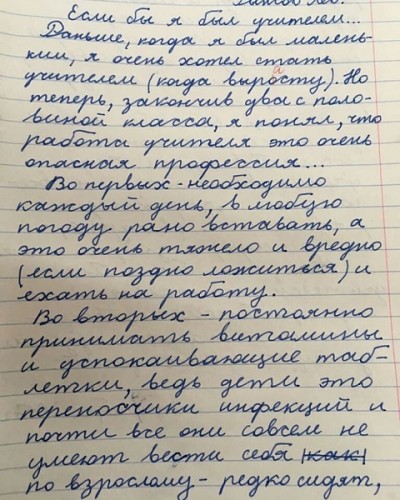 Если бы я был учителем...
Даньше, когда я был малень-
ким, я очень хотел стать
учителем (когда вырасту). Но
теперь, закончив два с поло-
виной класса, я понял, что
работа учителя это очень
опасная профессия...
Во первых - необходимо
каждый день, в любую
погоду рано вставать, а
это очень тяжело и вредно
(если поздно ложиться) и
ехать на работу.
Во вторых - постоянно
принимать витамины
и успокаивающие таб-
летки, ведь дети это
переносчики инфекций и
почти все они совсем не
умеют вести себя как
по взрослому - редко сидят,